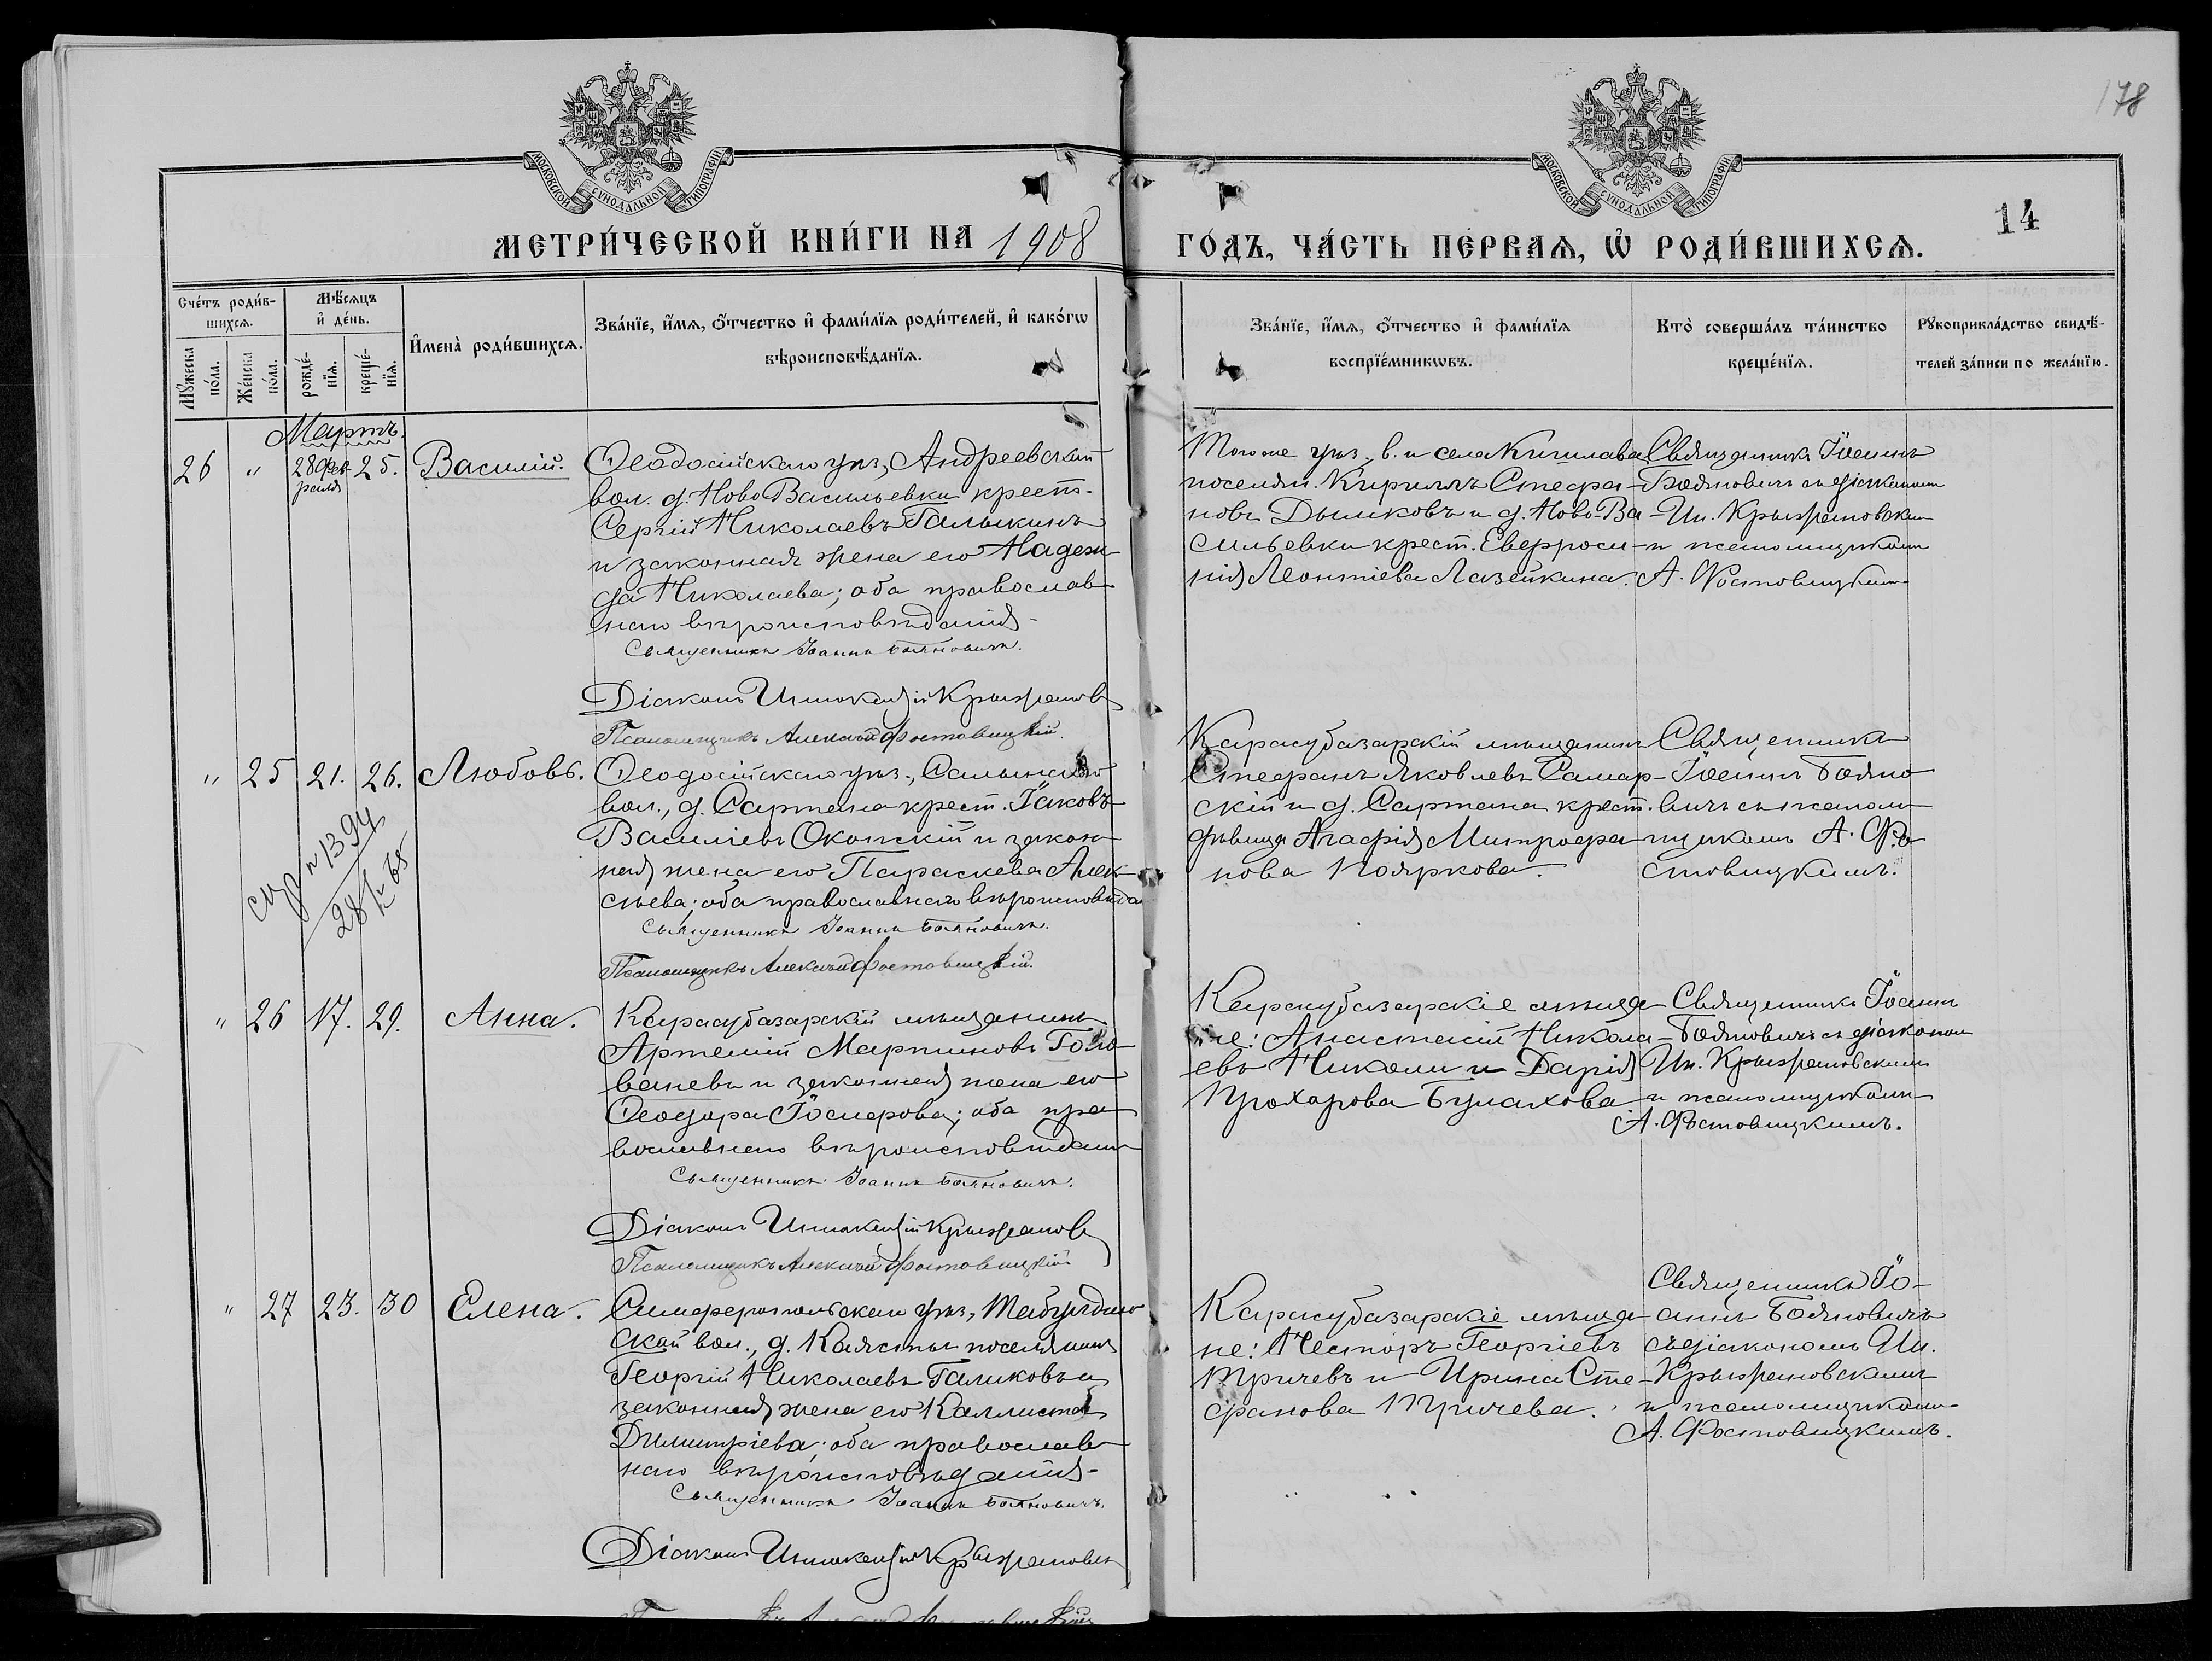 178
14
МОСКОВСКОЙ СѴНОДАЛЬНОЙ ТИПОГРАФІИ
МОСКОВСКОЙ СѴНОДАЛЬНОЙ ТИПОГРАФІИ
МЕТРИ́ЧЕСКОЙ КНИ́ГИ НА 1908 ГО́ДЪ, ЧА́СТЬ ПЕ́РВАЯ, Ѿ РОДИ́ВШИХСЯ.
Сче́тъ роди́в-
шихсѧ.
Мꙋ́жеска по́ла.
Же́нска по́ла.
Мѣ́сѧцъ
и҆ де́нь.
рожде́-
нїѧ.
креще́-
нїѧ.
И҆мена̀ роди́вшихсѧ.
Зва́нїе, и҆́мѧ, ѻ҆́тчество и҆ фами́лїѧ роди́телей, и҆ како́гѡ
вѣроисповѣ́данїѧ.
Зва́нїе, и҆́мѧ, ѻ҆́тчество и҆ фами́лїѧ
воспрїе́мникѡвъ.
Кто̀ соверша́лъ та́инство
креще́нїѧ.
Рꙋкоприкла́дство свидѣ́-
телей за́писи по жела́нїю.
Мартъ.
26 " 28 Фев-
раля 25. Василій.
Ѳеодосійскаго уѣз., Андреевской
вол. д. Ново Васильевки крест.
Сергій Николаевъ Галыкинъ
и законная жена его Надеж
да Николаева; оба православ
наго вѣроисповѣданія
Священникъ Іоаннъ Бояновичъ.
Діаконъ Иннокентій Крыжанов
Псаломщикъ Алексѣй Фостовицкій.
Тогоже уѣз., в. и села Кишлава
поселян. Кириллъ Стефа-
новъ Дымковъ и д. Ново-Ва-
сильевки крест. Евфроси-
нія Леонтіева Лазейкина.
Священникъ Іоаннъ
Бояновичъ съ діакономъ
Ин. Крыжановским
и псаломщикомъ
А. Фостовицкимъ
" 25 21. 26. Любовь.
Ѳеодосійскаго уѣз., Салынской
вол., д. Сартана крест. Іаковъ
Василіевъ Окопскій и закон
ная жена его Параскева Алек
сѣева; оба православнаго вѣроисповѣда
Священникъ Іоаннъ Бояновичъ.
Псаломщикъ Алексѣй Фостовицкій.
Карасубазарскій мѣщанинъ
Стефанъ Яковлевъ Самар-
скій и д. Сартана крест.
дѣвица Агафія Митрофа-
нова Пояркова.
Священникъ
Іоаннъ Бояно
вичъ съ псалом
щикомъ А. Фо
стовицкимъ.
№ 1394
28
" 26 17. 29. Анна.
Карасубазарскій мѣщанинъ
Артемій Мартиновъ Голо
ваневъ и законная жена его
Ѳеодора Іосифова; оба пра
вославнаго вѣроисповѣдан
Священникъ Іоаннъ Бояновичъ.
Діаконъ Иннокентій Крыжанов
Псаломщикъ Алексѣй Фостовицкій
Карасубазарскіе мѣща
не: Анастасій Никола-
евъ Николи и Дарія
Прохорова Булахова
Священникъ Іоаннъ
Бояновичъ съ діакономъ
Ин. Крыжановскимъ
и псаломщикомъ
А. Фостовицкимъ.
" 27 23. 30 Елена.
Симферопольскаго уѣз., Табулдин
ской вол., д. Каясты поселянинъ
Георгій Николаевъ Галиковъ и
законная жена его Каллиста
Димитріева; оба православ
наго вѣроисповѣданія
Священникъ Іоаннъ Бояновичъ.
Діаконъ Иннокентій Крыжановск
Карасубазарскіе мѣща
не: Несторъ Георгіевъ
Тричевъ и Ирина Сте-
фанова Тричева.
Священникъ Іо-
аннъ Бояновичъ
съ діакономъ Ин.
Крыжановскимъ
и псаломщикомъ
А. Фостовицкимъ.